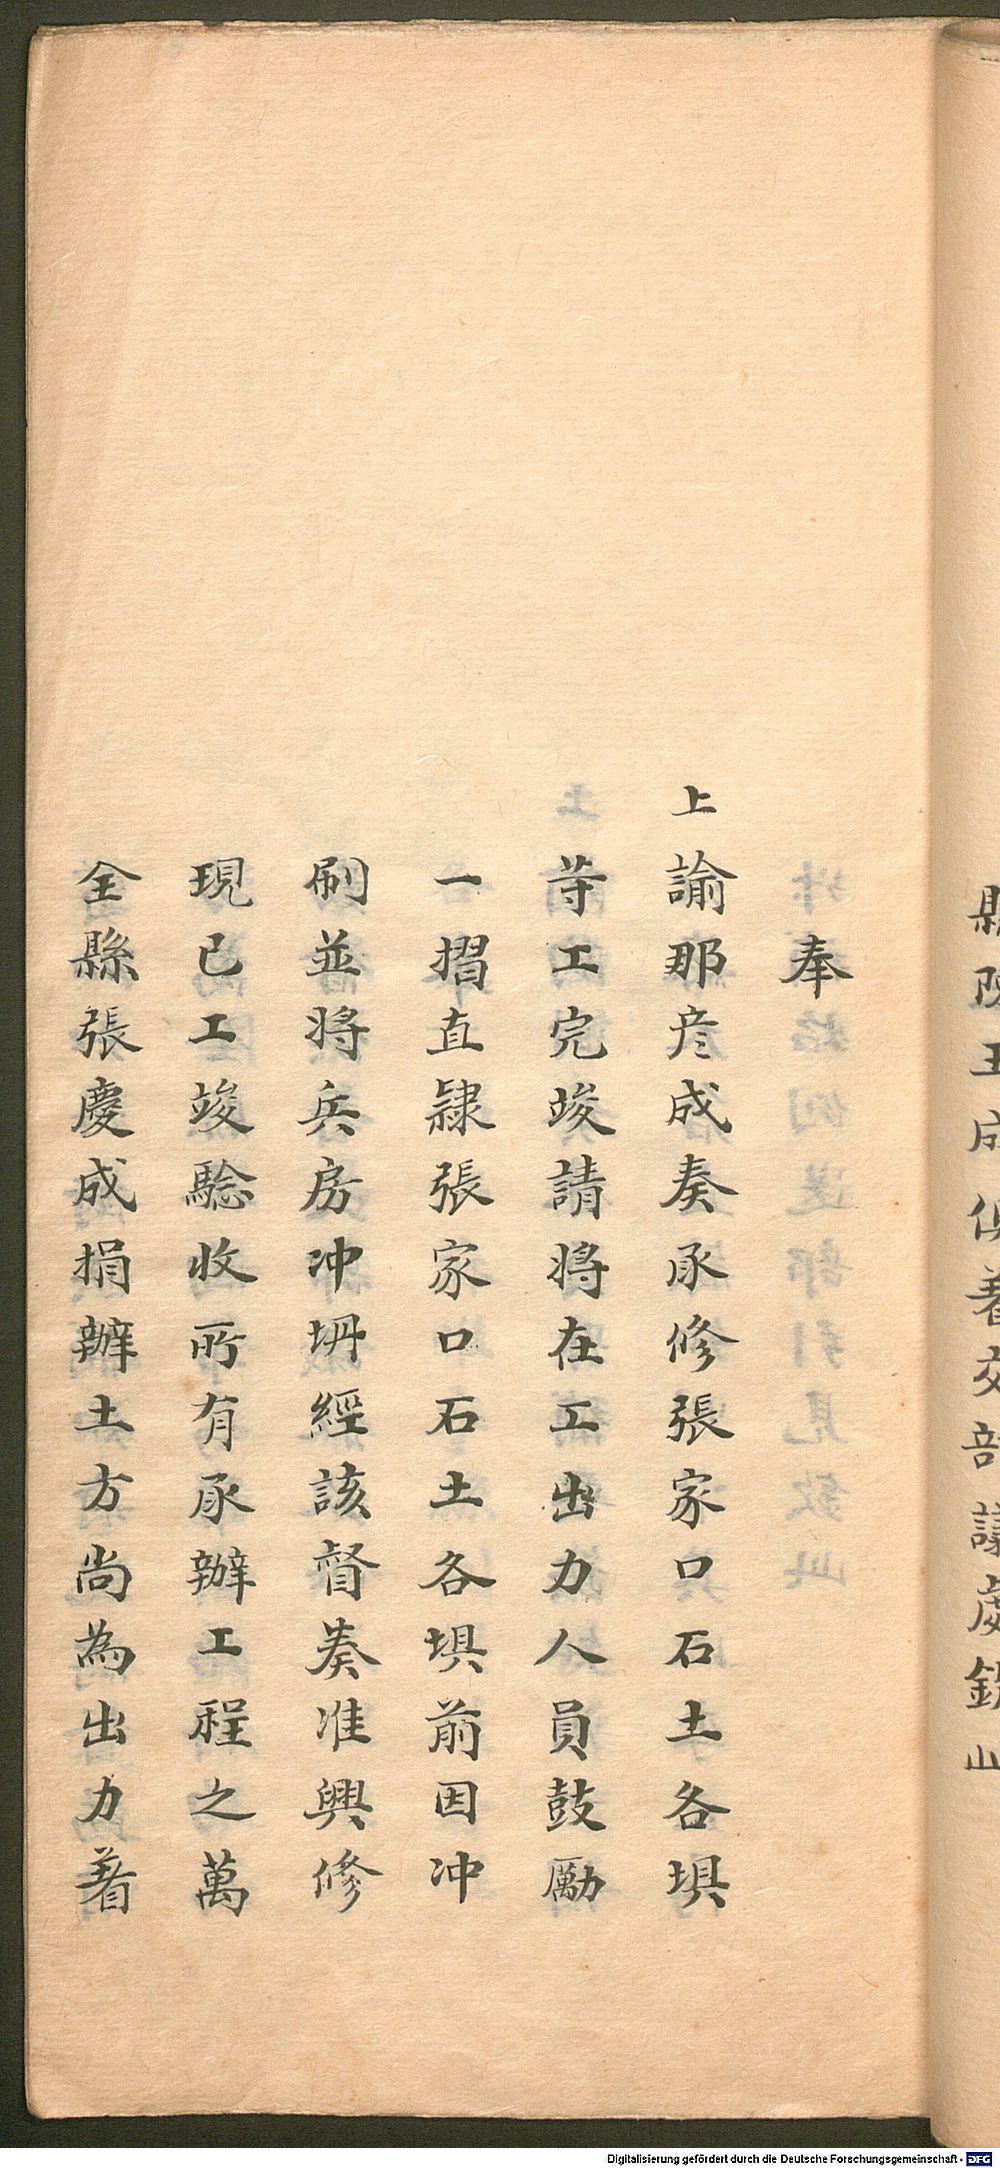 奉
上諭那彦成奏承修張家口石土各埧
等工完竣請將在工出力人員鼓勵
一摺直隸張家口石土各埧前因冲
刷並將兵房冲坍經該督奏准興修
現已工竣驗收所有承辦工程之萬
全縣張慶成捐辦土方尚為出力著
Digitalisierung gefördert durch die Deutsche Forschungsgemeinschaft - DFG